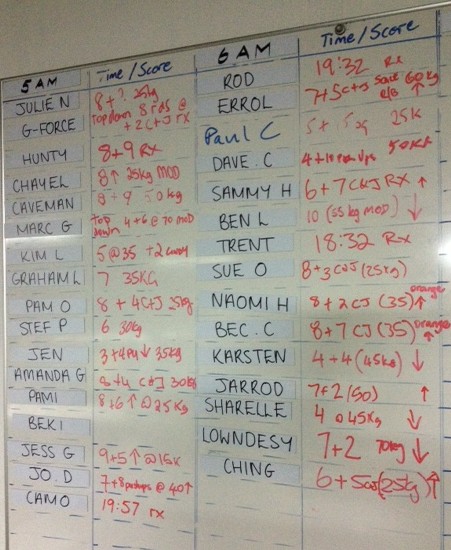 5 AM Time/Score
JULIE N 8+? 25kg
G-FORCE Top down 8 rds @ + 2 C+J rx
HUNTY 8+9 RX
CHAYEL 8↑ 25kg MOD
CAVEMAN 8+9
MARC G Top down 4+6 @ 70 MOD
KIM L 5@35 +2
GRAHAM L 7 35KG
PAM O 8 + 4C+J 25kg
STEF P 6 30kg
JEN 3+4PU↓ 35kg
AMANDA G +4 C&J 30kg
PAMI 8+6↑@25Kg
BEKI
JESS G 9+5↑@15K
JO.D 7+8pushups @ 40↑
CAMO 19:57 rx
6 AM Time/Score
ROD 19:32 Rx
ERROL 7+5C+J 60kg ↑
Paul C 25K
DAVE.C 4+10 50KG
SAMMY H 6+7C&J RX ↑
BEN L 10 (55kg MOD) ↓
TRENT 18:32 Rx
SUE O 8+3C&J (25kg)
NAOMI H 8+2CJ (35)↑ orange
BEC.C 8+7CJ (35) orange ↑
KARSTEN 4+4 (45kg) ↓
JARROD 7+2 (50) ↑
SHARELLE 4 @45Kg ↓
LOWNDESY 7+2 70kg ↓
CHING 6+5CJ(25kg)↑